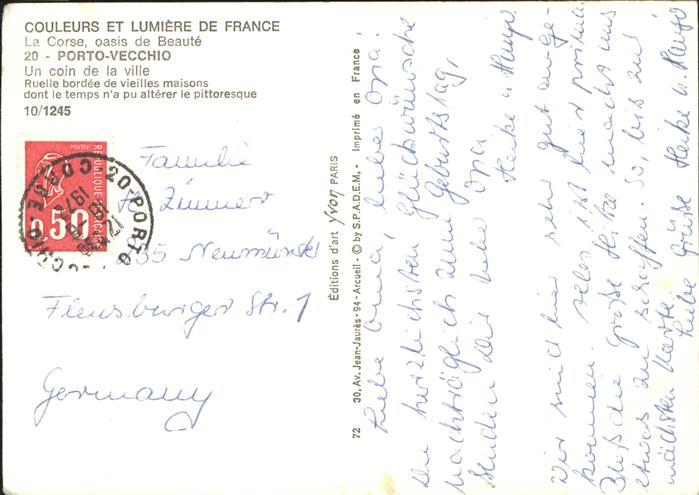 COULEURS ET LUMIÈRE DE FRANCE
La Corse, oasis de Beauté
20 - PORTO-VECCHIO
Un coin de la ville
Ruelle bordée de vieilles maisons
dont le temps n'a pu altérer le pittoresque
10/1245
REPUBLIQUE FRANÇAISE
0.50
20 PORTO-VECCHIO
CORSE
Familie
H. Zimmer
235 Neumünster
Flensburger Str. 1
Germany
Editions d'art yvon PARIS
30, Av. Jean-Jaurès - 94 - Arcueil - © by S.P.A.D.E.M. - Imprimé en France
72
Liebe Oma, lieber Opa!
Die herzlichsten Glückwünsche
nachträglich zum Geburtstag,
senden Dir liebe Oma
Heike u. Hugo.
Wir sind hier sehr gut ange-
kommen. Alles ist hier prima.
Bloß die große Hitze macht uns
etwas zu schaffen. So, bis zur
nächsten Karte
Liebe Grüße Heike u. Hugo